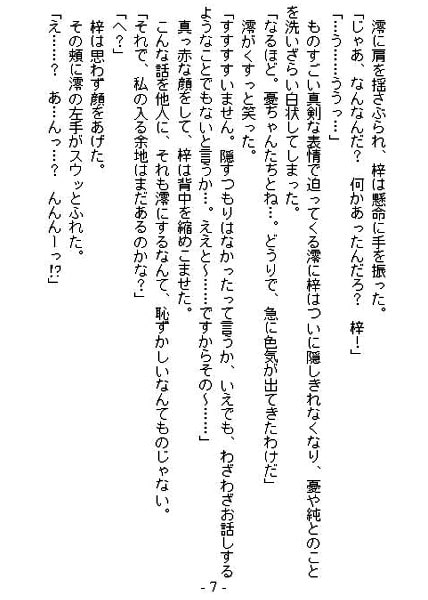 澪に肩を揺さぶられ、梓は懸命に手を振った。
「じゃあ、なんなんだ?　何かあったんだろ?　梓!」
「…う……ううっ…」
ものすごい真剣な表情で迫ってくる澪に梓はついに隠しきれなくなり、憂や純とのこと
を洗いざらい白状してしまった。
「なるほど。憂ちゃんたちとね…。どうりで、急に色気が出てきたわけだ」
澪がくすっと笑った。
「すすすすいません。隠すつもりはなかったって言うか、いえでも、わざわざお話しする
ようなことでもないと言うか…。ええと〜……ですからその〜……」
真っ赤な顔をして、梓は背中を縮めこませた。
こんな話を他人に、それも澪にするなんて、恥ずかしいなんてものじゃない。
「それで、私の入る余地はまだあるのかな?」
「へ?」
梓は思わず顔をあげた。
その頬に澪の左手がスウッとふれた。
「え……?　あ…んっ…?　んんんーっ!?」
- 7 -